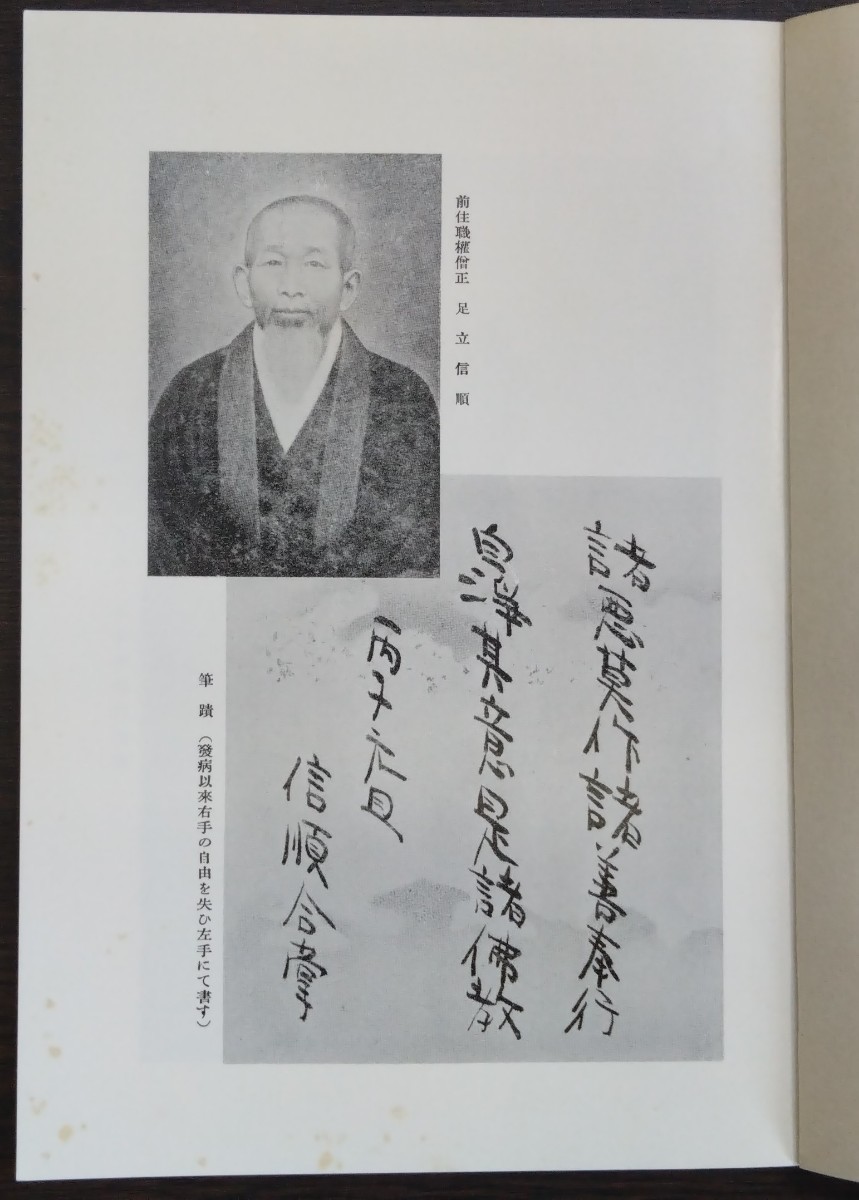 前住職權僧正 足立信順
諸惡莫作諸善奉行
自淨其意是諸佛教
丙子元旦
信順合掌
筆蹟（發病以來右手の自由を失ひ左手にて書す）